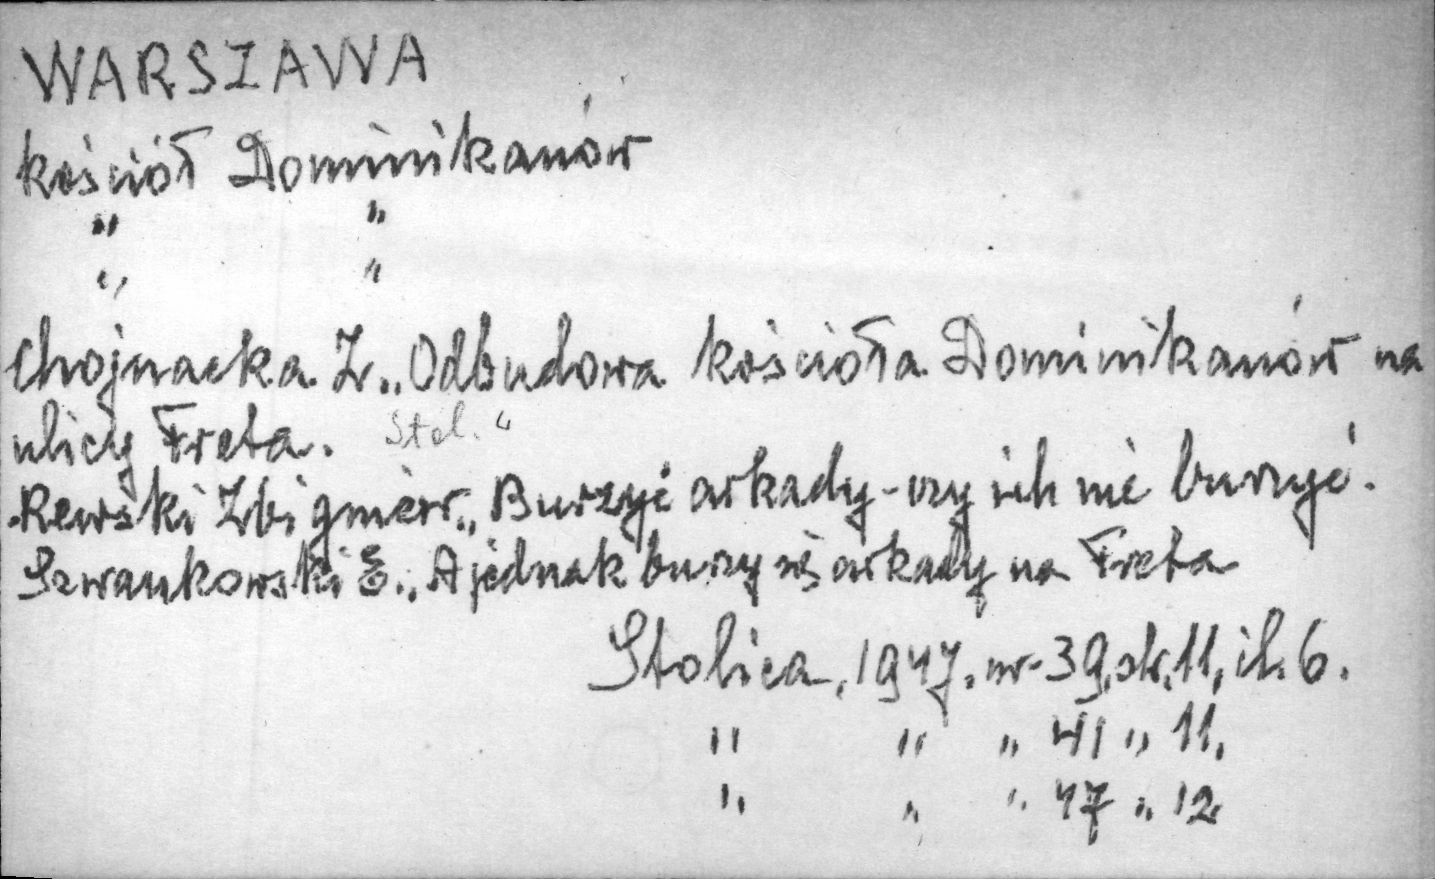 WARSZAWA
kościół Dominikanów
" "
" "
Chojnacka Z. „Odbudowa kościoła Dominikanów na
ulicy Freta. Stol. "
Rewski Zbigniew „Burzyć arkady - czy ich nie burzyć.
Szwankowski E. „A jednak burzy się arkady na Freta
Stolica, 1947, nr 39, str. 11, il. 6.
" " " 41 " 11,
" " " 47 " 12